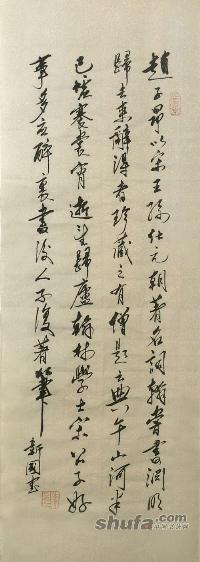 趙子昂以宋王孫仕元朝著名詞翰嘗書淵明
歸去來辭得者珍藏之有僧題云典午山河半
已墟褰裳宵逝望歸廬翰林學士宋公子好
事多應醉裏書後人不復著筆
shufa.com